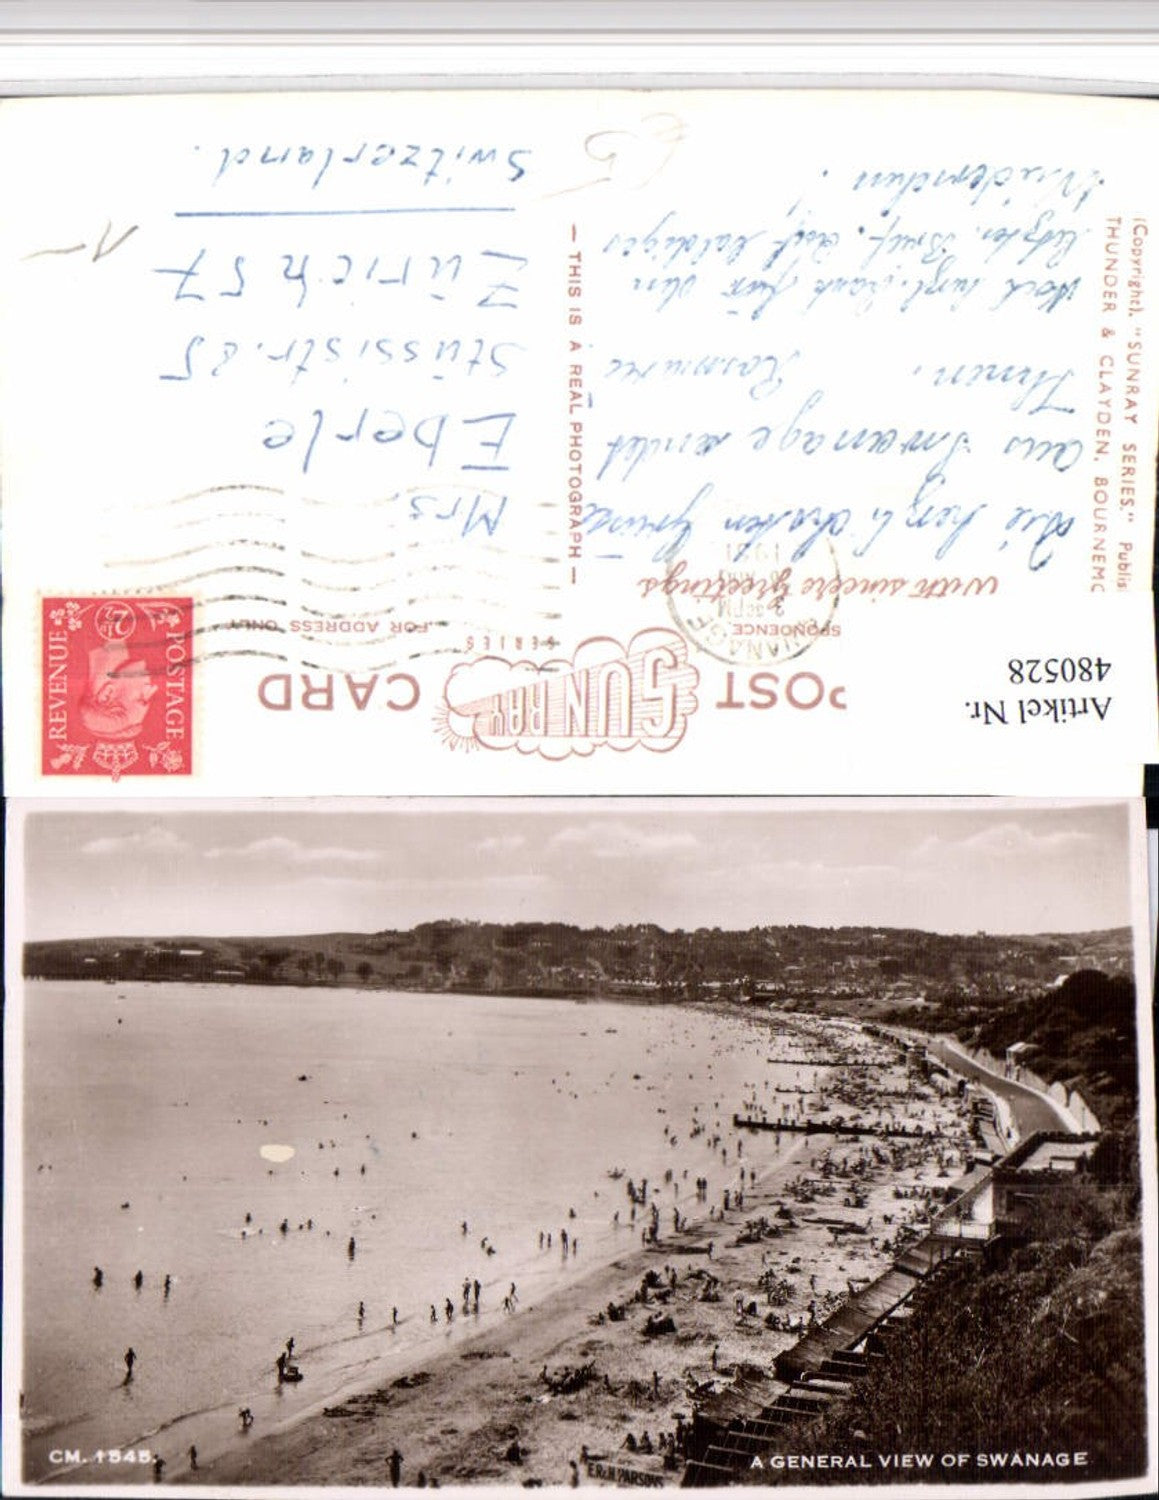 Artikel Nr.
480528
POST
SUNRAY
SERIES
CARD
SPONDENCE.
FOR ADDRESS ONLY
POSTAGE
REVENUE
2½
SWANAGE
1951
With sincere greetings
Die herzlichsten Grüsse
aus Swanage sendet
Ihnen,
Noch herzl. Dank für den
Brief. Auf baldiges
Wiedersehen!
— THIS IS A REAL PHOTOGRAPH —
Mrs.
Eberle
Stüssistr. 85
Zürich 57
Switzerland.
(Copyright). "SUNRAY SERIES." Publis
THUNDER & CLAYDEN, BOURNEMO
CM. 1545.
E.R.&H. PARSONS
A GENERAL VIEW OF SWANAGE